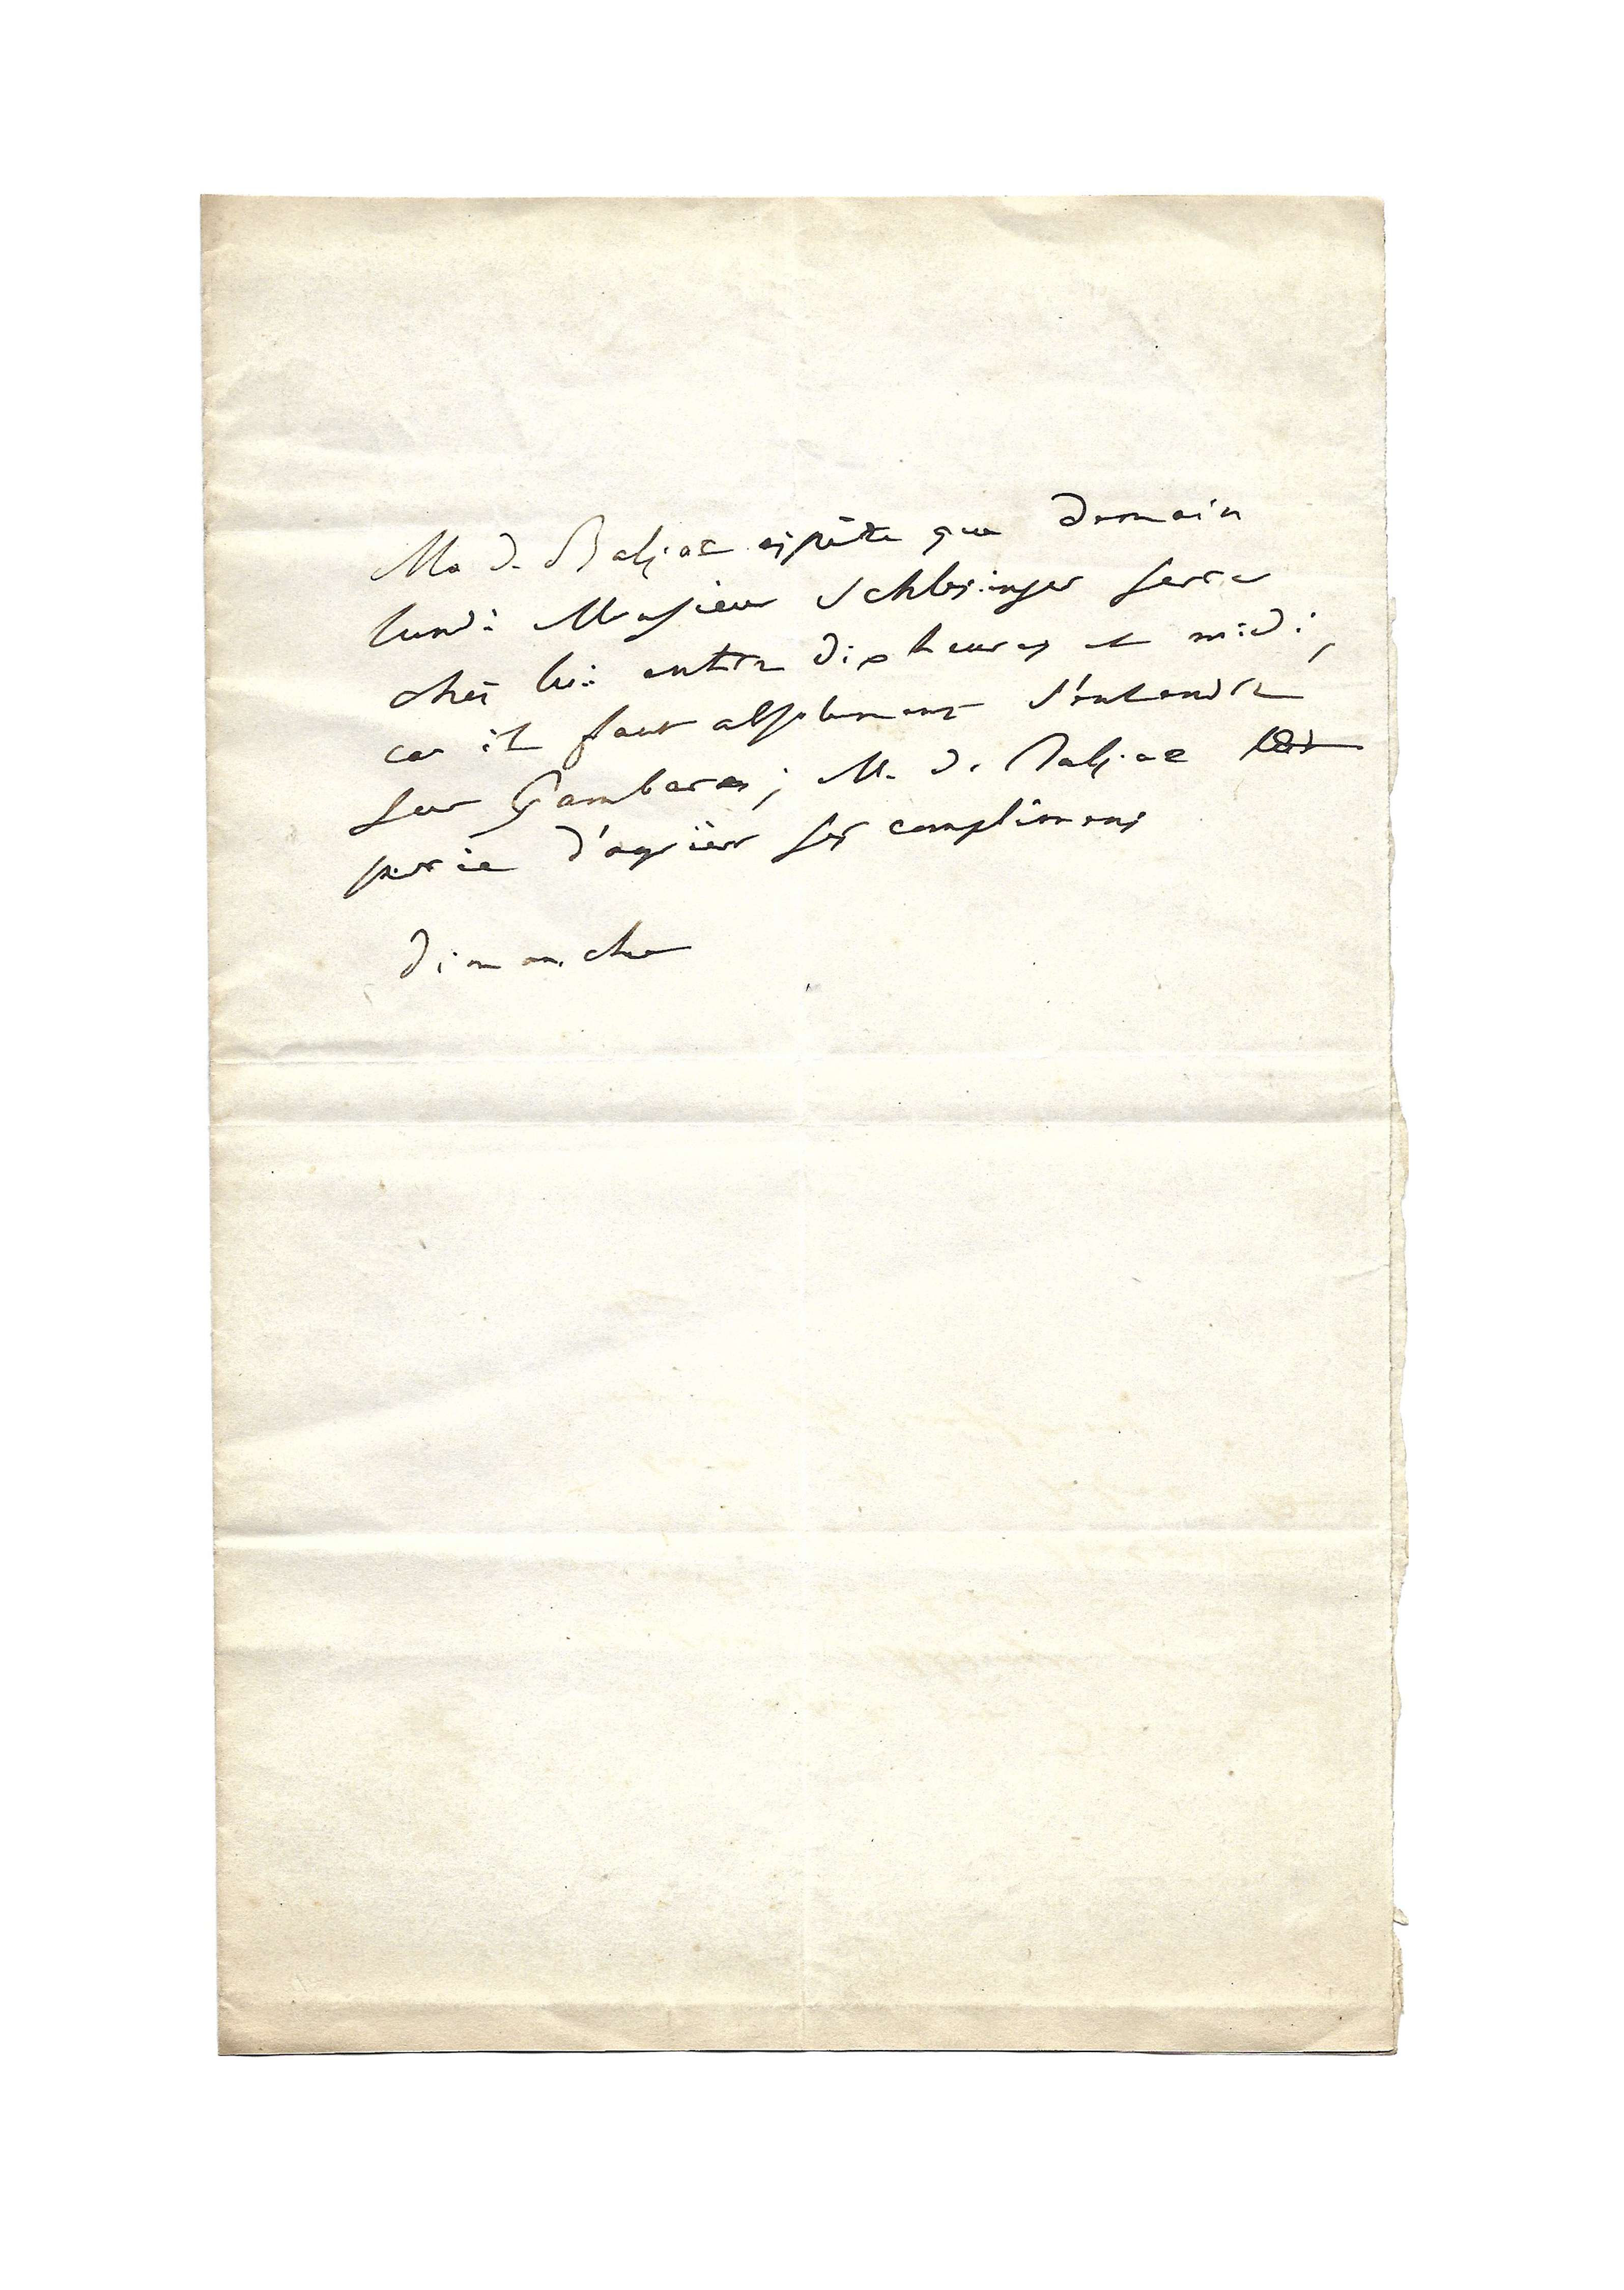 M. de Balzac espère que demain
lundi Monsieur Schlesinger sera
chez lui entre dix heures et midi,
car il faut absolument s'entendre
sur Gambara ; M. de Balzac
prie d'agréer ses complimens
dimanche